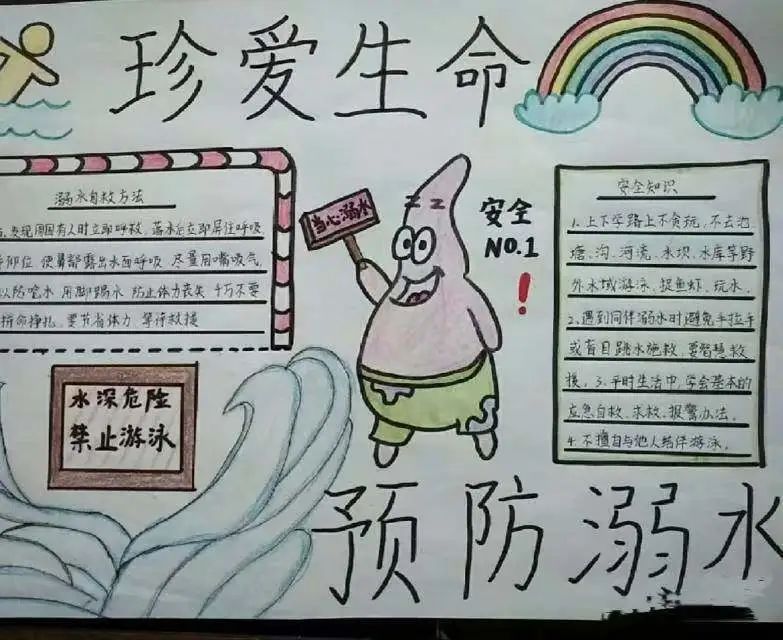 珍爱生命
溺水自救方法
发现周围有人时立即呼救，落水后立即屏住呼吸
仰位，使鼻部露出水面呼吸，尽量用嘴吸气
以防呛水，用脚踢水，防止体力丧失，千万不要
拼命挣扎，要节省体力，等待救援
水深危险
禁止游泳
当心溺水
安全
NO.1
！
安全知识
1.上下学路上不贪玩，不去池
塘、沟、河流、水坝、水库等野
外水域游泳、捉鱼虾、玩水。
2、遇到同伴溺水时避免手拉手
或盲目跳水施救，要智慧救
援。3、平时生活中，学会基本的
应急自救、求救、报警办法。
4.不擅自与他人结伴游泳。
预防溺水